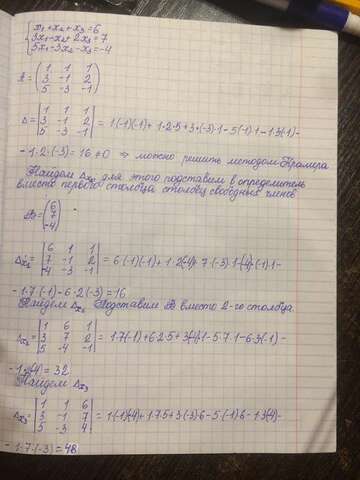 x₁+x₂+x₃=6
3x₁-x₂+2x₃=7
5x₁-3x₂-x₃=-4
A= ( 1 1 1
3 -1 2
5 -3 -1 )
Δ= | 1 1 1
3 -1 2
5 -3 -1 | = 1(-1)(-1)+1·2·5+3·(-3)·1-5(-1)·1-1·3(-1)-
-1·2·(-3)=16≠0 ⇒ можно решить методом Крамера
Найдем Δx₁ для этого подставим в определитель
вместо первого столбца столбец свободных членов
B= ( 6
7
-4 )
Δx₁= | 6 1 1
7 -1 2
-4 -3 -1 | = 6·(-1)(-1)+1·2(-4)+7·(-3)·1-(-4)·(-1)·1-
-1·7·(-1)-6·2·(-3)=16
Найдем Δx₂ Подставим B вместо 2-го столбца
Δx₂= | 1 6 1
3 7 2
5 -4 -1 | = 1·7(-1)+6·2·5+3(-4)·1-5·7·1-6·3(-1)-
-1·2(-4)=32
Найдем Δx₃
Δx₃= | 1 1 6
3 -1 7
5 -3 4 | = 1·(-1)(-4)+1·7·5+3·(-3)6-5(-1)6-1·3(-4)-
-1·7·(-3)=48